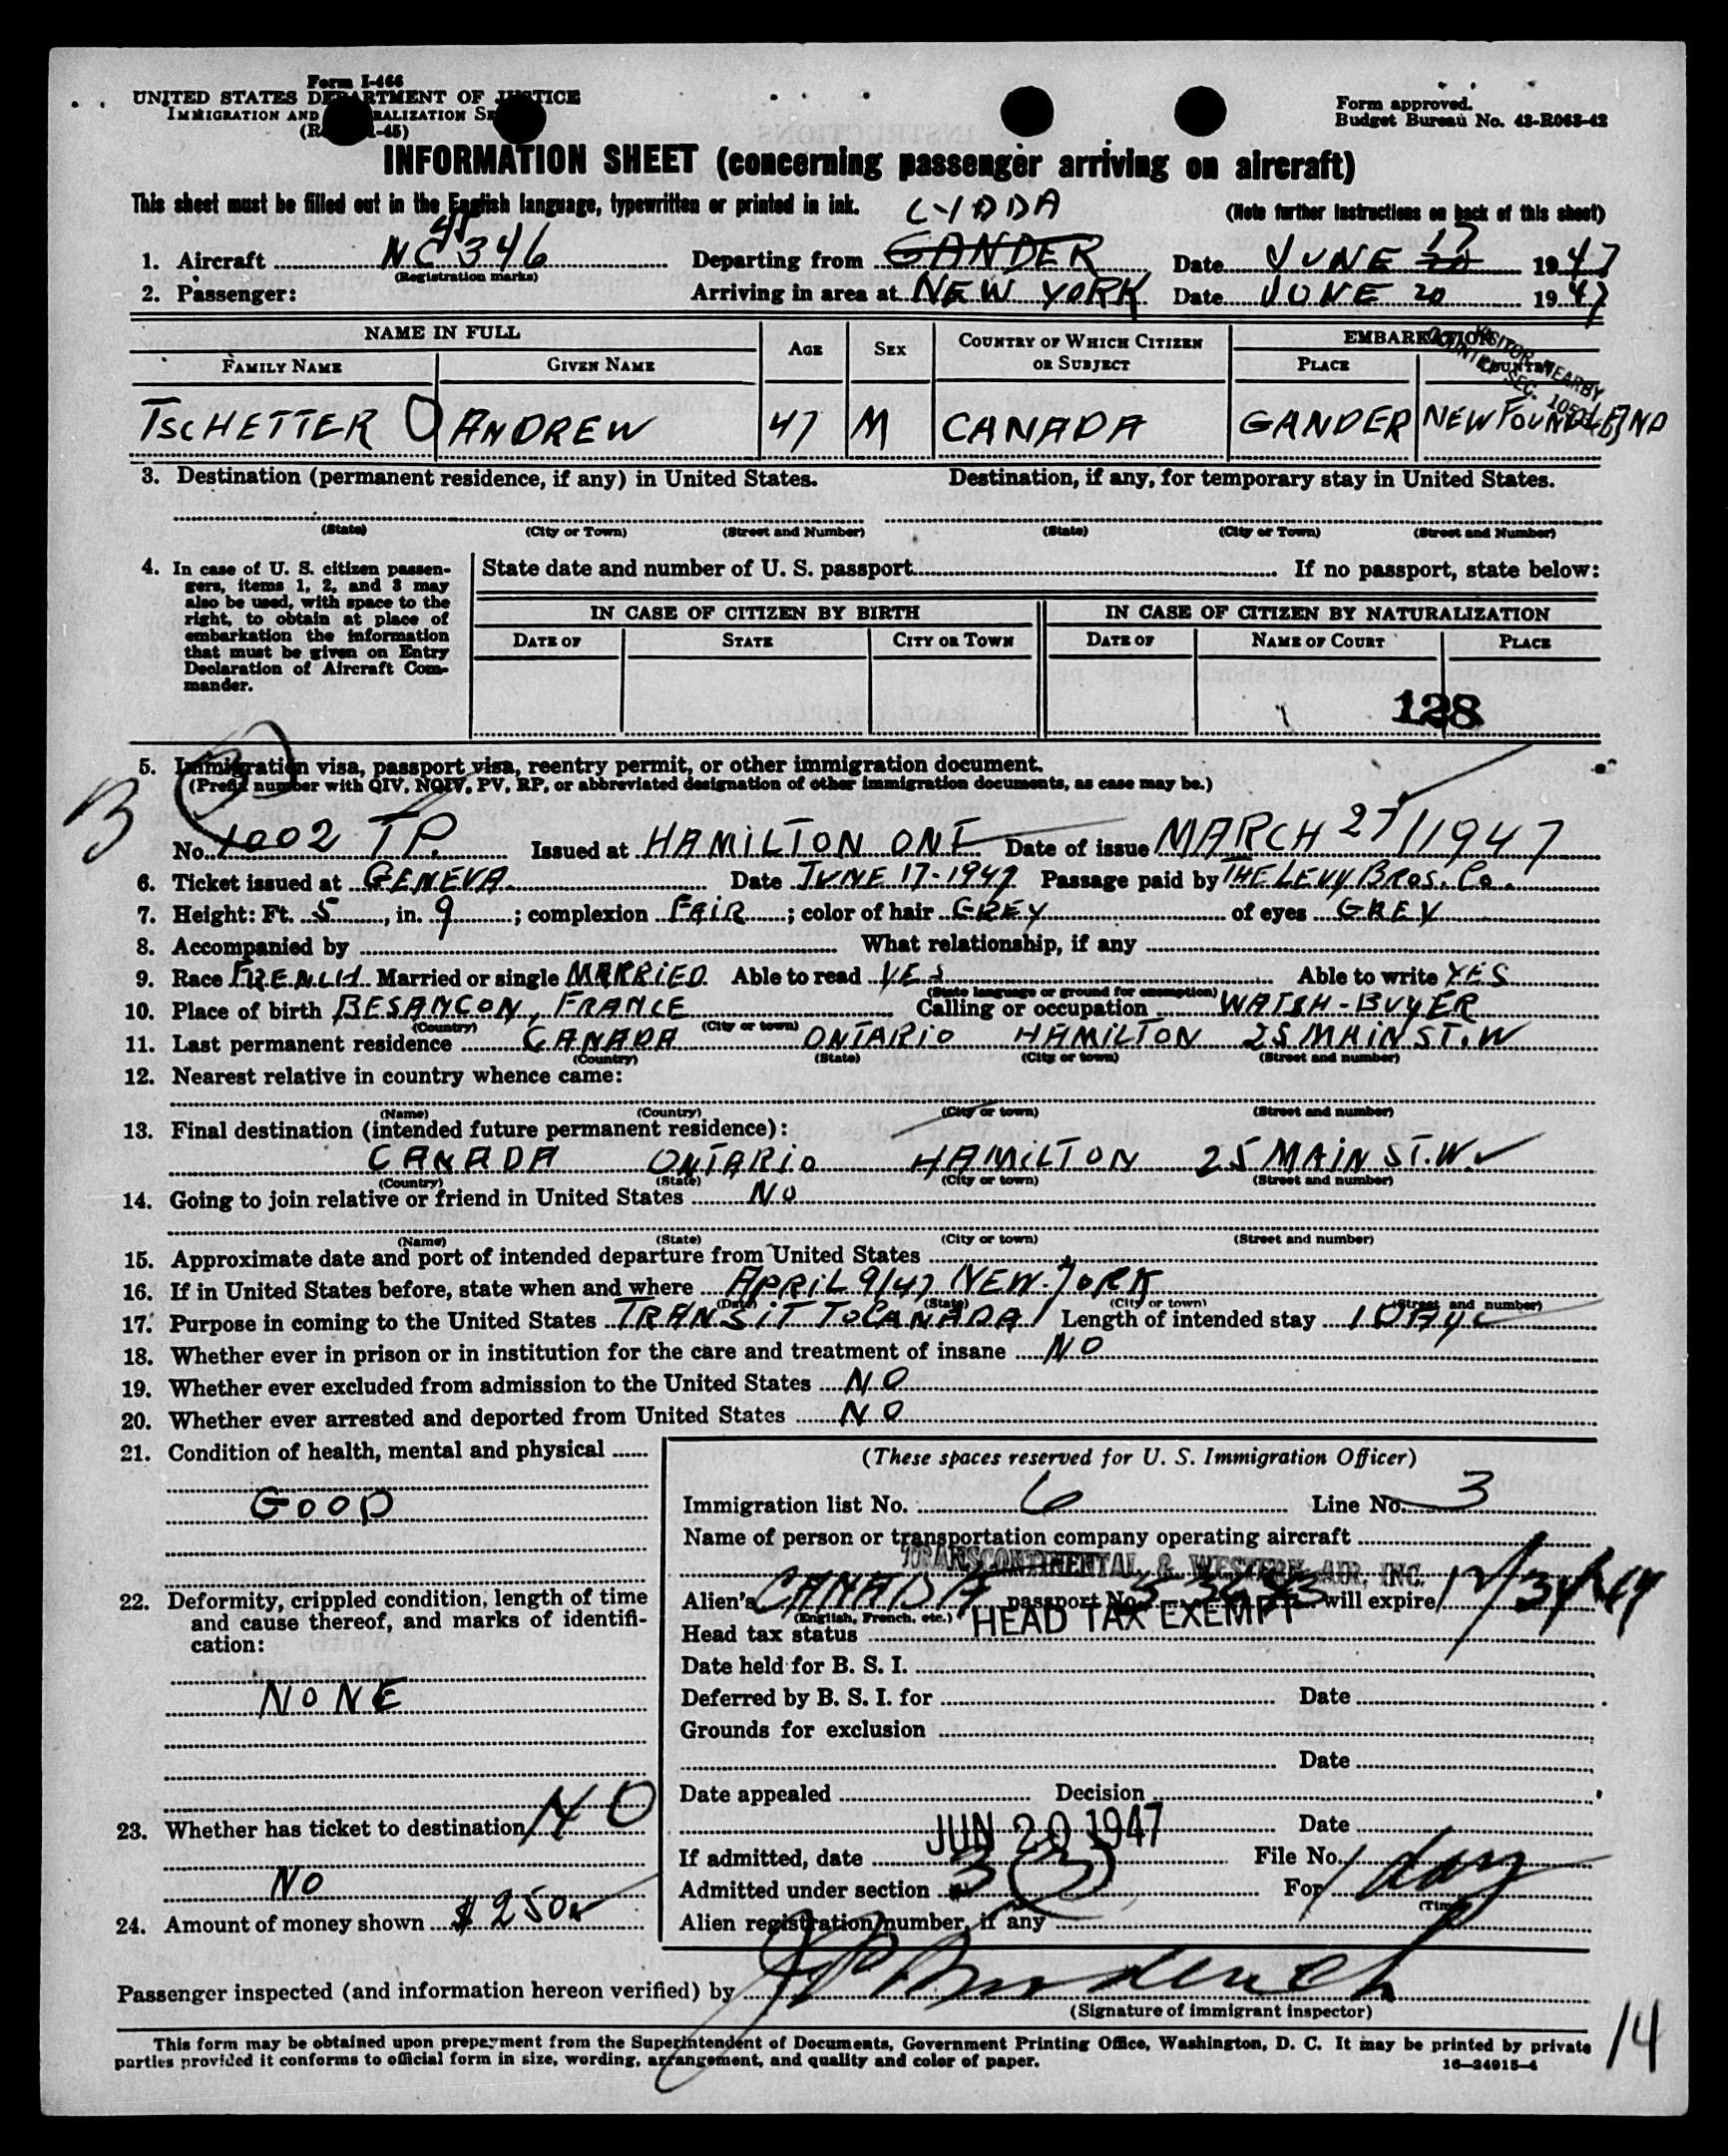 Form I-466
UNITED STATES DEPARTMENT OF JUSTICE
IMMIGRATION AND NATURALIZATION SE
-45)
Form approved.
Budget Bureau No. 43-R063-42
INFORMATION SHEET (concerning passenger arriving on aircraft)
This sheet must be filled out in the English language, typewritten or printed in ink. LYDDA (Note further instructions on back of this sheet)
1. Aircraft NC 45346 Departing from GANDER Date JUNE 20 17 1947
(Registration marks)
2. Passenger: Arriving in area at NEW YORK Date JUNE 20 1947
NAME IN FULL AGE SEX COUNTRY OF WHICH CITIZEN OR SUBJECT EMBARKATION
FAMILY NAME GIVEN NAME PLACE COUNTRY
VISITOR NEARBY
SEC.
TSCHETTER ANDREW 47 M CANADA GANDER NEWFOUNDLAND
3. Destination (permanent residence, if any) in United States. Destination, if any, for temporary stay in United States.
(State) (City or Town) (Street and Number) (State) (City or Town) (Street and Number)
4. In case of U. S. citizen passen-
gers, items 1, 2, and 3 may
also be used, with space to the
right, to obtain at place of
embarkation the information
that must be given on Entry
Declaration of Aircraft Com-
mander.
State date and number of U. S. passport If no passport, state below:
IN CASE OF CITIZEN BY BIRTH IN CASE OF CITIZEN BY NATURALIZATION
DATE OF STATE CITY OR TOWN DATE OF NAME OF COURT PLACE
128
5. Immigration visa, passport visa, reentry permit, or other immigration document.
(Prefix number with QIV, NQIV, PV, RP, or abbreviated designation of other immigration documents, as case may be.)
B
No. 1002 T.P. Issued at HAMILTON ONT Date of issue MARCH 27/1947
6. Ticket issued at GENEVA Date JUNE 17-1947 Passage paid by THE LEVY BROS. Co.
7. Height: Ft. 5, in. 9; complexion FAIR; color of hair GREY of eyes GREY
8. Accompanied by What relationship, if any
9. Race FRENCH Married or single MARRIED Able to read YES Able to write YES
(State language or ground for exemption)
10. Place of birth BESANCON, FRANCE Calling or occupation WATCH-BUYER
(Country) (City or town)
11. Last permanent residence CANADA ONTARIO HAMILTON 25 MAIN ST. W
(Country) (State) (City or town) (Street and number)
12. Nearest relative in country whence came:
(Name) (Country) (City or town) (Street and number)
13. Final destination (intended future permanent residence):
CANADA ONTARIO HAMILTON 25 MAIN ST. W.
(Country) (State) (City or town) (Street and number)
14. Going to join relative or friend in United States NO
(Name) (State) (City or town) (Street and number)
15. Approximate date and port of intended departure from United States
16. If in United States before, state when and where APRIL 9/47 NEW-YORK
(Date) (State) (City or town) (Street and number)
17. Purpose in coming to the United States TRANSIT TO CANADA Length of intended stay 1 DAY
18. Whether ever in prison or in institution for the care and treatment of insane NO
19. Whether ever excluded from admission to the United States NO
20. Whether ever arrested and deported from United States NO
21. Condition of health, mental and physical
GOOD
22. Deformity, crippled condition, length of time
and cause thereof, and marks of identifi-
cation:
NONE
23. Whether has ticket to destination NO
NO
24. Amount of money shown $250
(These spaces reserved for U. S. Immigration Officer)
Immigration list No. 6 Line No. 3
Name of person or transportation company operating aircraft
TRANSCONTINENTAL & WESTERN AIR, INC.
Alien's CANADA passport No. will expire 12/31/49
(English, French, etc.)
Head tax status HEAD TAX EXEMPT
Date held for B. S. I.
Deferred by B. S. I. for Date
Grounds for exclusion
Date
Date appealed Decision
Date
If admitted, date JUN 20 1947 File No.
Admitted under section 3(3) For 1 day
(Time)
Alien registration number, if any
Passenger inspected (and information hereon verified) by
(Signature of immigrant inspector)
This form may be obtained upon prepayment from the Superintendent of Documents, Government Printing Office, Washington, D. C. It may be printed by private
parties provided it conforms to official form in size, wording, arrangement, and quality and color of paper. 16—24915-4
14